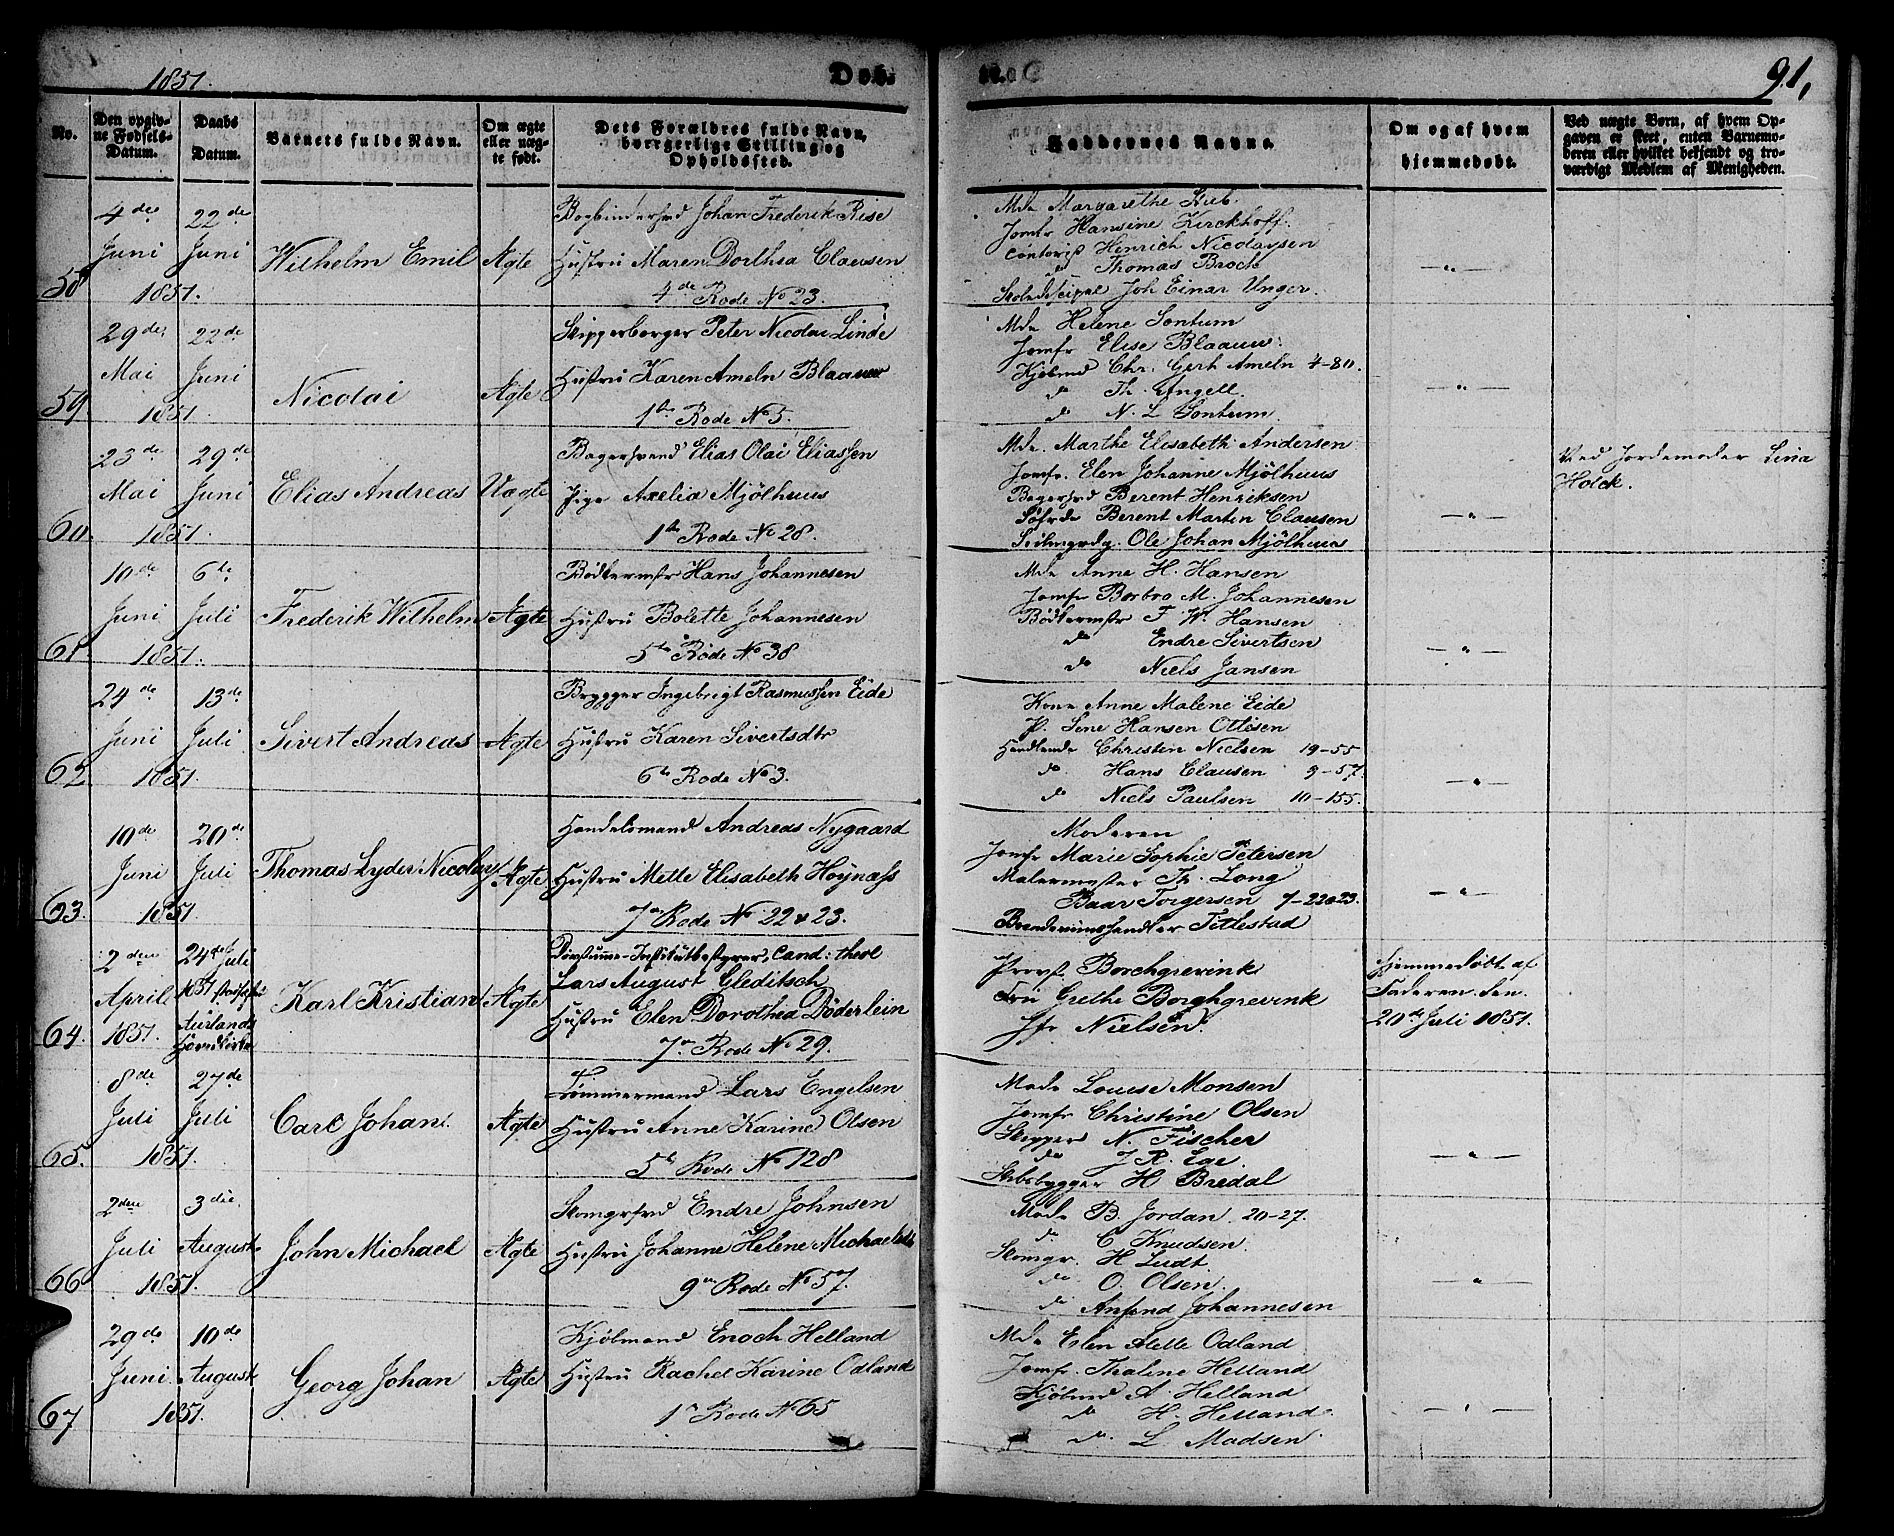 1851.
Døb.
91,
No.
Den opgiv-
ne Fødsels-
Datum.
Daabs
Datum.
Barnets fulde Navn.
Om ægte
eller uæg-
te født.
Dets Forældres fulde Navn,
borgerlige Stilling og
Opholdssted.
Faddernes Navne.
Om og af hvem
hjemmedøbt.
Ved uægte Børn, af hvem Op-
gaven er skeet, enten Barnemo-
deren eller hvilket bekjendt og tro-
værdigt Medlem af Menigheden.
58
4de Juni 1851.
22de Juni
Wilhelm Emil
Ægte
Bogbindersvd Johan Frederik Rise
Hustru Maren Dorthea Clausen
4de Rode No 23.
Mde Margarethe
Jomfr Hansine Kirckhoff.
Contorist Henrich Nicolaysen
do Thomas Brock
Skolediscipel Joh Einar Unger.
— " —
59
29de Mai 1851.
22de Juni
Nicolai
Ægte
Skipperborger Peter Nicolai Linde
Hustru Karen Ameln Blaauw
1ste Rode No 5.
Mde Helene Sontum
Jomfr Elise Blaauw.
Kjøbmd Chr. Gerh Ameln 4-80.
do Th. Angell.
do N. L. Sontum.
— " —
60
23de Mai 1851.
29de Juni
Elias Andreas
Uægte
Bagersvend Elias Olai Eliassen
Pige Axelia Mjølhuus
1ste Rode No 28.
Mde. Marthe Elisabeth Andersen
Jomfr. Elen Johanne Mjølhuus
Bagersvd Berent Henriksen
Berent Martin Clausen
Ole Johan Mjølhuus
— " —
Ved Jordemoder Lina
Holck.
61
10de Juni 1851.
6te Juli
Frederik Wilhelm
Ægte
Bødkermstr Hans Johannesen
Hustru Bolette Johannesen
5te Rode No 38
Mde Anne H. Hansen
Jomfr Borbra M. Johannesen
Bødkermstr F. W. Hansen
do Endre Sivertsen
do Niels Jansen
— " —
62
24de Juni 1851.
13de Juli
Sivert Andreas
Ægte
Brygger Ingebrigt Rasmussen Eide
Hustru Karen Sivertsdtr
6te Rode No 3.
Kone Anne Malene Eide
P. Sine Hansen Ottesen
Handlende Christen Nielsen 19-55
do Hans Clausen 9-57.
do Niels Paulsen 10-155.
— " —
63.
10de Juni 1851.
20de Juli
Thomas Lyder Nicolay
Ægte
Handelsmand Andreas Nygaard
Hustru Mette Elisabeth Høynass
7de Rode No 22 & 23.
Moderen
Jomfr Marie Sophie Petersen
Malermester Th. Long
Baar Torgersen 7-22&23.
Brændeviinshandler Titlestad
— " —
64.
2den April 1851.
24de Juli
1851 stadfæstet
Aurlands
Hovedkirke
Karl Kristian
Ægte
Døvstumme-Institutbestyrer, Cand: theol
Lars August Gleditsch
Hustru Elen Dorothea Döderlein
7de Rode No 29.
Provst Borchgrevink
Fru Grethe Borghgrevink
Jfr Nielsen.
Hjemmedøbt af
Faderen den
20de Juli 1851.
65.
8de Juli 1851.
27de Juli
Carl Johan.
Ægte
Tømmermand Lars Engelsen
Hustru Anne Karine Olsen
5te Rode No 128
Made Louise Monsen
Jomfr Christine Olsen
Skipper N. Fischer
do J. R. Ege.
Skibsbygger H Bredal
— " —
66
2den Juli 1851.
3die August
John Michael
Ægte
Skomgrsvd Endre Johnsen
Hustru Johanne Helene Michaelsdtr
9de Rode No 57.
Made B. Jordan. 20-27.
do C Knudsen.
Skomgr. H Ludt.
do O. Olsen.
do Anfend Johannesen
— " —
67
29de Juni 1851.
10de August
Georg Johan
Ægte
Kjøbmand Enoch Helland
Hustru Rachel Karine Odland
1ste Rode No 65
Mde Elen Alette Odland
Jomfr. Thaline Helland
Kjøbmd A. Helland
do H. Helland.
do. L. Madsen.
— " —